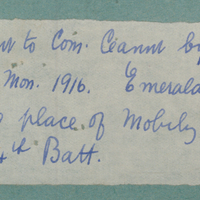 to Com. Ceannt by
Mon. 1916. Emerald
place of Mobily
4th Batt.